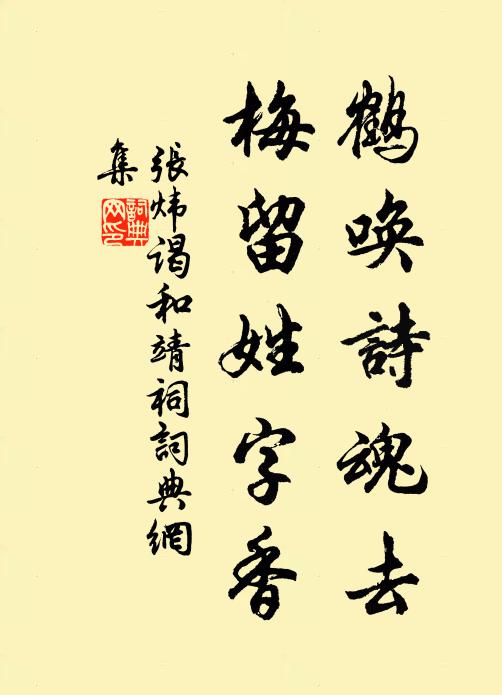 鶴唤詩魂去
梅留姓字香
張炜谒和靖祠詞典網
集
詞典
网印